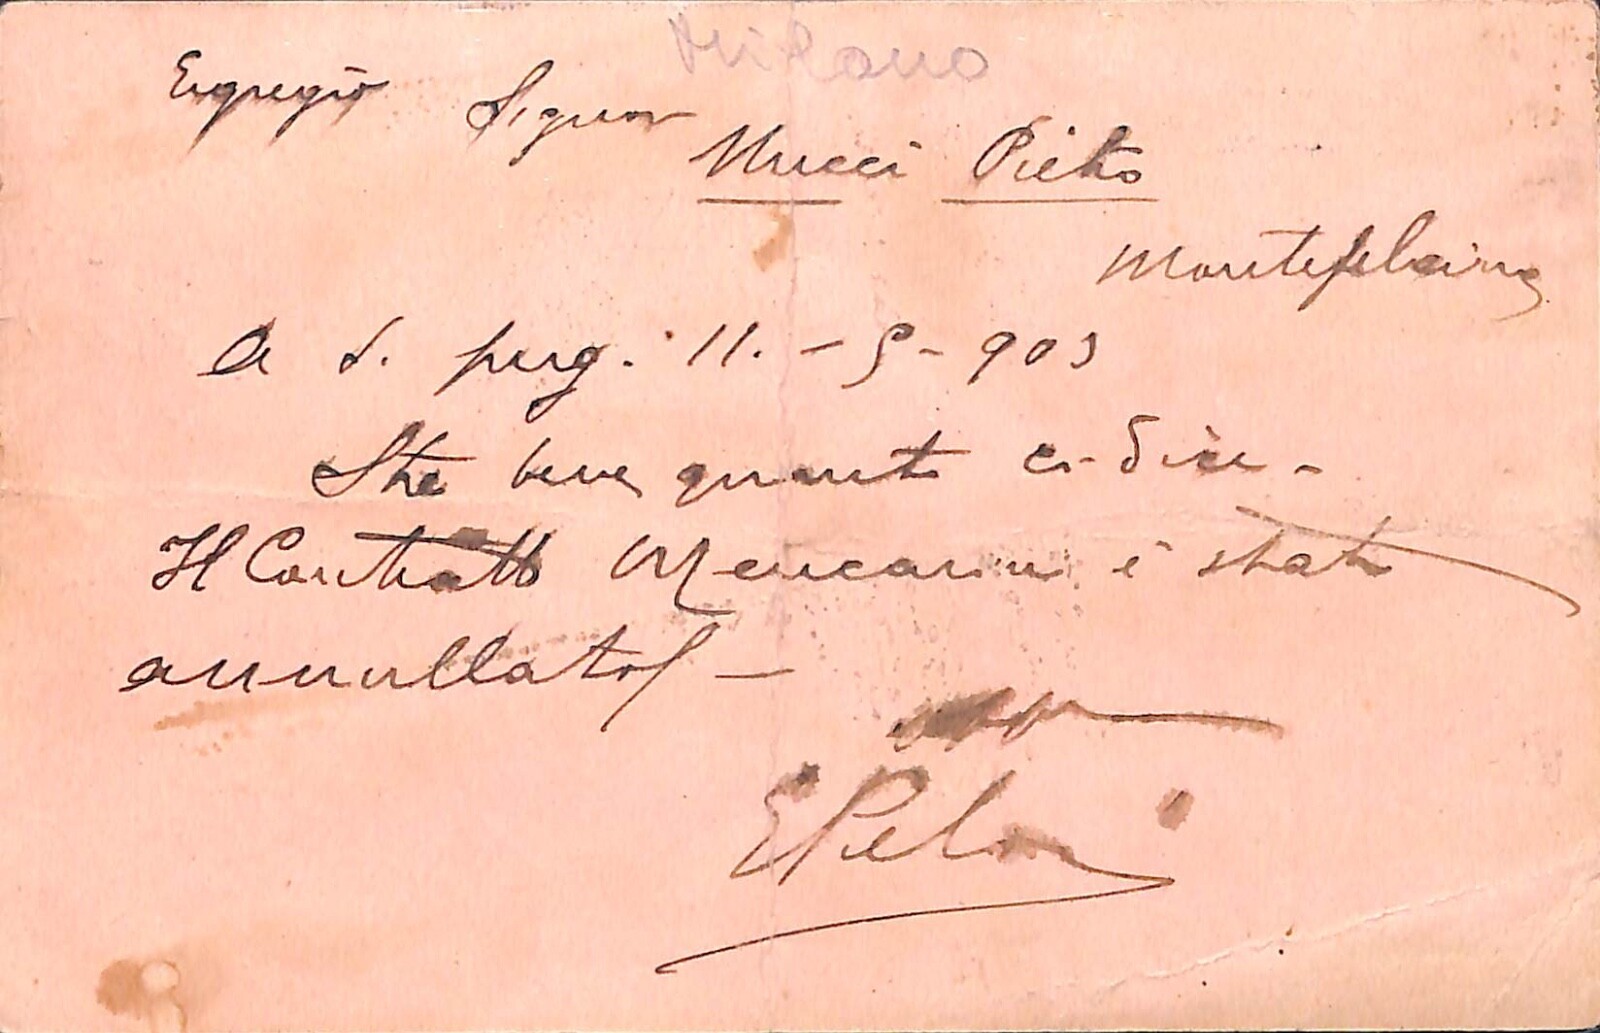 Milano
Egregio Signor
Nucci Pietro
Montefelcino
A S. pregg. 11. - 5 - 903
Sta bene quanto ci dice -
Il Contratto Mencarini è stato
annullato -